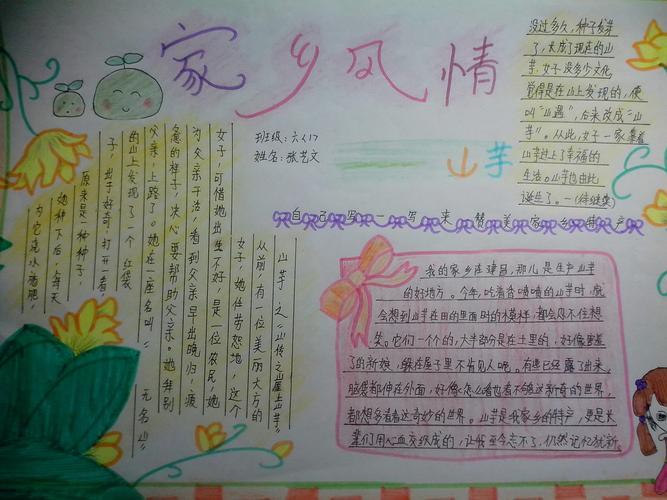 家乡风情
班级:六(1)
姓名:张艺文
山芋
自己写一写来赞美家乡特产
山芋之《山传之崖上山芋》
从前,有一位美丽大方的
女子,她任劳怨地,这个
女子,可惜她出生不好,是一位农民,她
为父亲干活,看到父亲早出晚归,疲
惫的样子,决心要帮助父亲。她辞别
父亲,上路了。她在一座名叫《无名山》
的山上发现了一个红袋
子,出于好奇,打开一看,
原来是一种种子,
她种下后,每天
为它浇水施肥,
没过多久,种子发芽
了,长成了现在的山
芋,女子没多少文化,
觉得是在山上发现的,便
叫“山遇”,后来改成“山
芋”。从此,女子一家靠着
山芋过上了幸福的
生活。山芋也由此
诞生了。—(待继续)
我的家乡在建昌,那儿是生产山芋
的好地方。今年,吃着香喷喷的山芋时,就
会想到山芋在田的里面时的模样,都会忍不住想
笑。它们一个个的,大半部分是在土里的,好像害羞
了的新娘,躲在屋子里不肯见人呢。有些已经露了出来,
脑袋都伸在外面,好像怎么看也看不够这新奇的世界,
都想多看看这奇妙的世界。山芋是我家乡的特产,更是长
辈们用心血交织成的,让我至今忘不了,仍然记忆犹新。